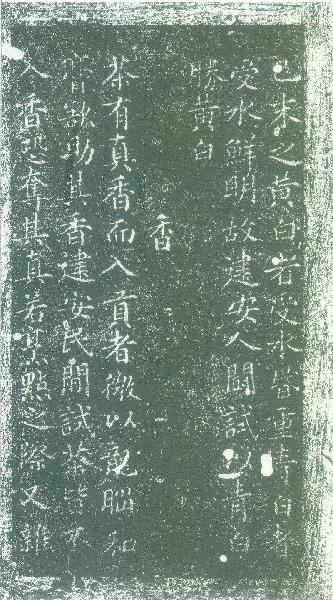 已末之黃白者受水昏重青白者
受水鮮明故建安人鬪試以青白
勝黃白
香
茶有真香而入貢者微以龍腦和
膏欲助其香建安民間試茶皆不
入香恐奪其真若烹點之際又雜